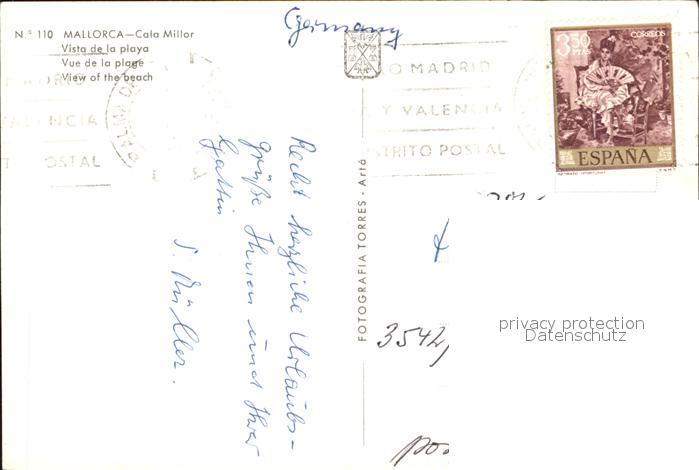 N.º 110 MALLORCA—Cala Millor
Vista de la playa
Vue de la plage
View of the beach
Germany
MADRID
ALENCIA
POSTAL
O MADRID
Y VALENCIA
STRITO POSTAL
3,50
PTAS
CORREOS
ESPAÑA
Recht herzliche Urlaubs-
grüße Ihnen und Ihrer
Gattin
S. Müller.
FOTOGRAFIA TORRES - Artá
3542,
po
privacy protection
Datenschutz